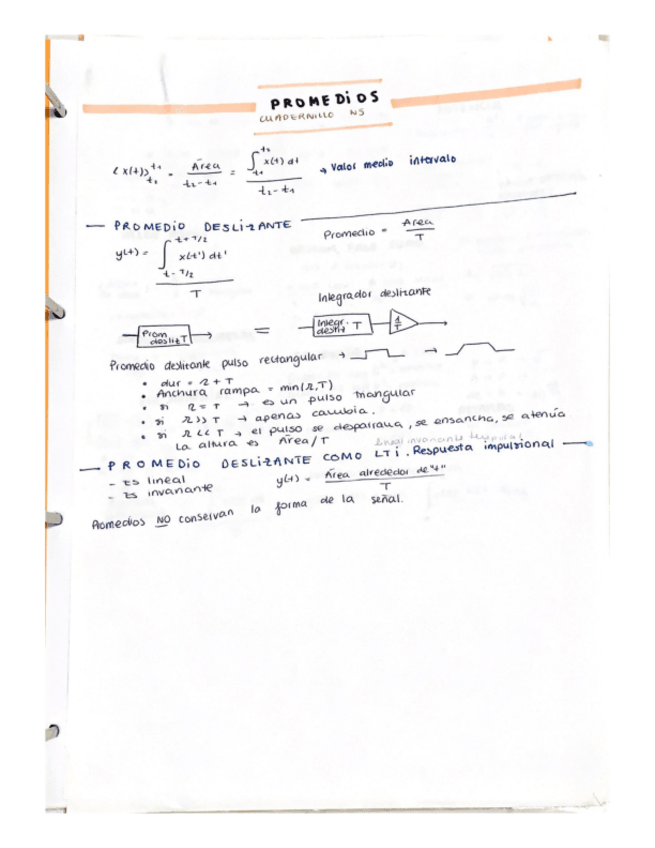 PROMEDIOS
CUADERNILLO N5
<x(t)>t1 t2 = Área / t2-t1 = ∫t1 t2 x(t) dt / t2-t1 → Valor medio intervalo
— PROMEDIO DESLIZANTE
Promedio = Area / T
y(t) = ∫t-T/2 t+T/2 x(t') dt' / T
Integrador deslizante
Prom desliz T = Integr. desliz T 1/T
Promedio deslizante pulso rectangular → →
• dur = Z + T
• Anchura rampa = min(Z,T)
• si Z = T → es un pulso triangular
• si Z >> T → apenas cambia.
• si Z << T → el pulso se desparrama, se ensancha, se atenúa
La altura es Área/T
lineal invariante temporal
— PROMEDIO DESLIZANTE COMO LTi. Respuesta impulsional —
- Es lineal
- Es invariante
y(t) = Área alrededor de "t" / T
Promedios NO conservan la forma de la señal.